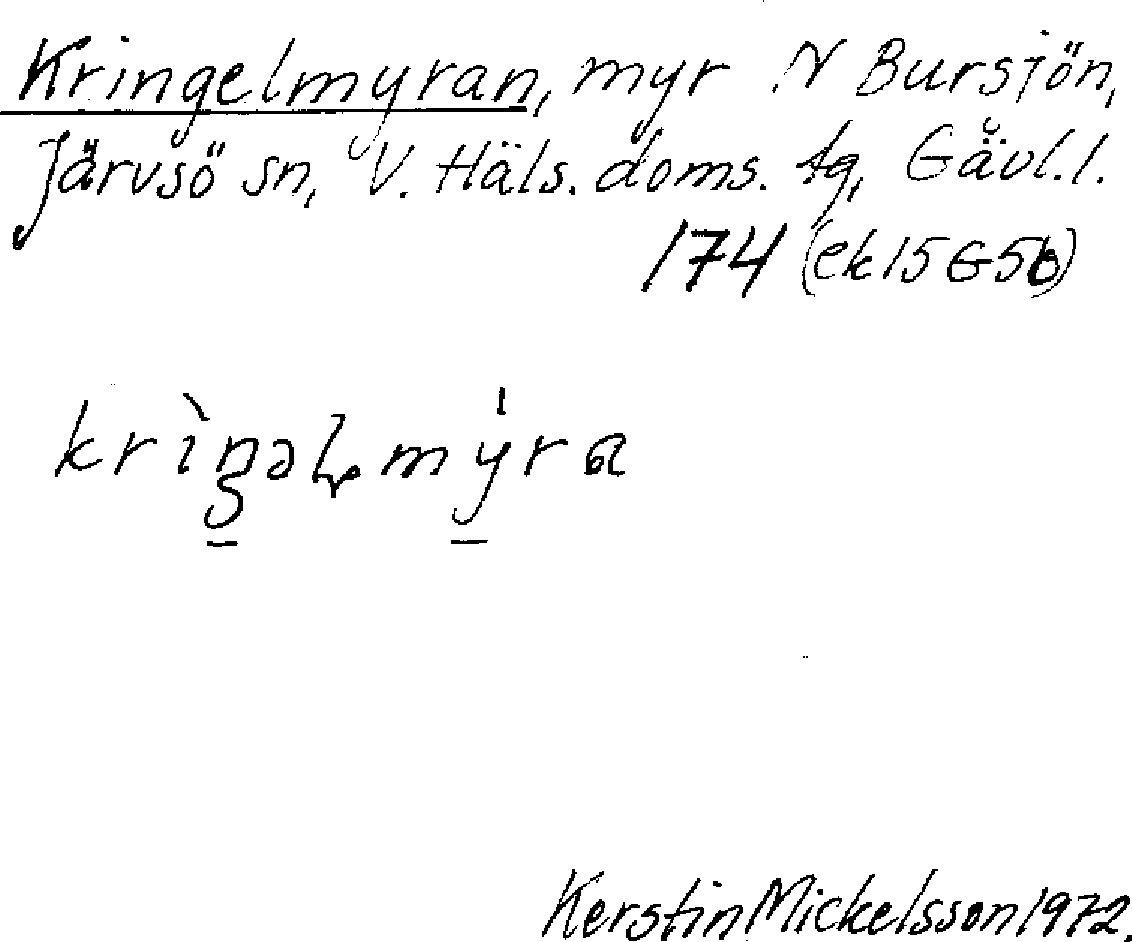 Kringelmyran, myr N Bursjön,
Järvsö sn, V. Häls. doms. tg, Gävl.l.
174 (ek 15G5b)
krìŋəḷmý̱ra
Kerstin Mickelsson 1972.